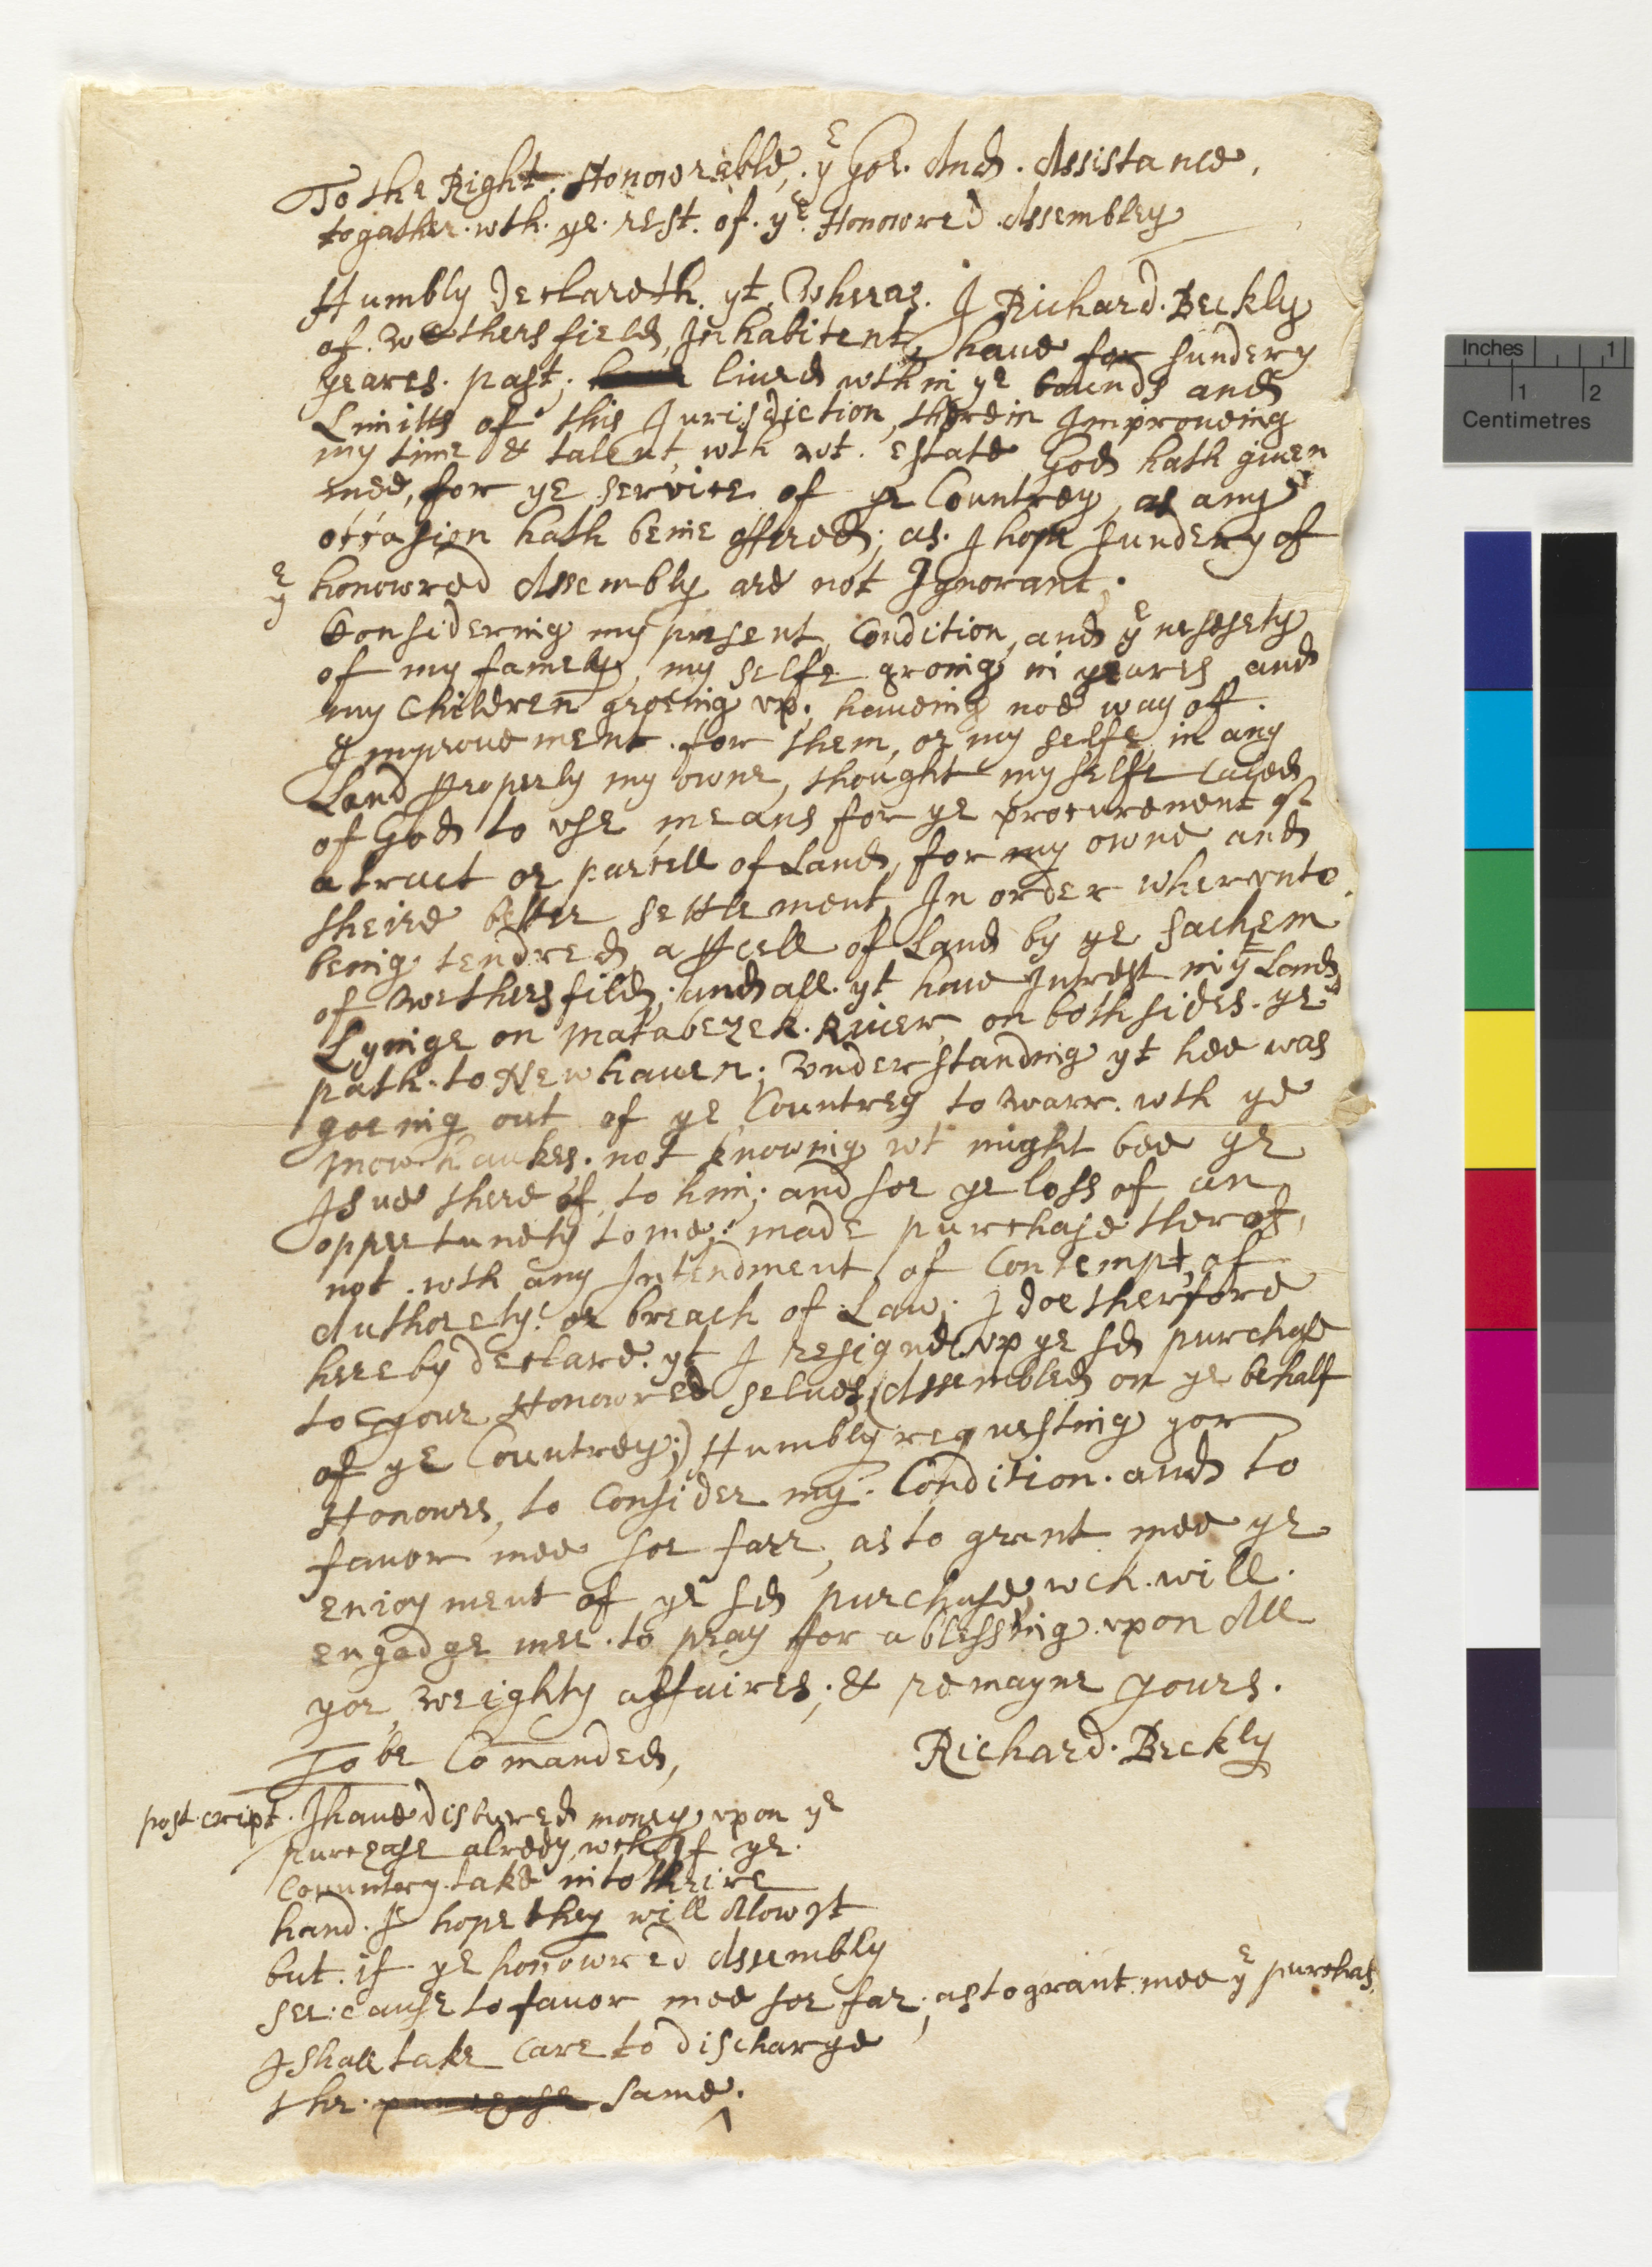 To the Right. Honowrable, ye Gor. And. Assistance,
togather. wth. ye. rest. of. ye. Honowred Assembley
Humbly Declareth. yt, Wheras. I Richard. Beckly
of. Wethersfield, Inhabitent, haue for sundery
yeares. past; liued wthin ye bounds and
Limitts of this Jurisdiction, therein Improueing
my time & talent, wth wt. estate God hath giuen
mee, for ye service of ye Countrey, as any
occasion hath beine offered; as. I hope sundery of
ye honowred Assembly are not Ignorant;
Considering my present Condition, and ye nesesety
of my famely, my selfe groing in yeares and
my Children groeing vp; haueing noe way of.
Improuement. for them, or my selfe in any
Land properly my owne, thought my selfe Caled
of God to vse means for ye procurement of
a tract or parcell of Land, for my owne and
theire better settlement, In order wherunto.
being tendred a pcell of Land by ye sachem
of Wethersfild; and all. yt haue Intrest in yt Land
Lyinge on Matabezek. River, on both sides. ye
path. to Newhauen; Vnderstanding yt hee was
goeing out of ye Countrey to Warr. wth ye
Mowhaukes. not knowing wt might bee ye
Isue there of, to him; and for ye loss of an
oppurtunety to me; made purchase therof,
not. wth any Intendment of Contempt, of
Authorety. or breach of Law; I doe therfore
hereby declare. yt I resigne vp ye sd purchase
to your Honowred selues, (Assembled on ye behalf
of ye Countrey;) Humbly requesting yor
Honours, to Consider my. Condition. and to
favor mee soe farr, as to grant mee ye
enioyment of ye sd purchase, wch. will.
engadge mee. to pray for a blessing. vpon All
yor, Weighty affaires; & remayne yours.
To be Comanded, Richard. Beckly
post.cript. I haue disbured money vpon ye
purchase alredy, wch if ye.
Counntery take into theire
hand. I hope they will Alow yt
but. if ye honowred Assembly
see. cause to favor mee soe far; as to grant mee ye purchas.
I shall take Care to discharge
the. purchase same.